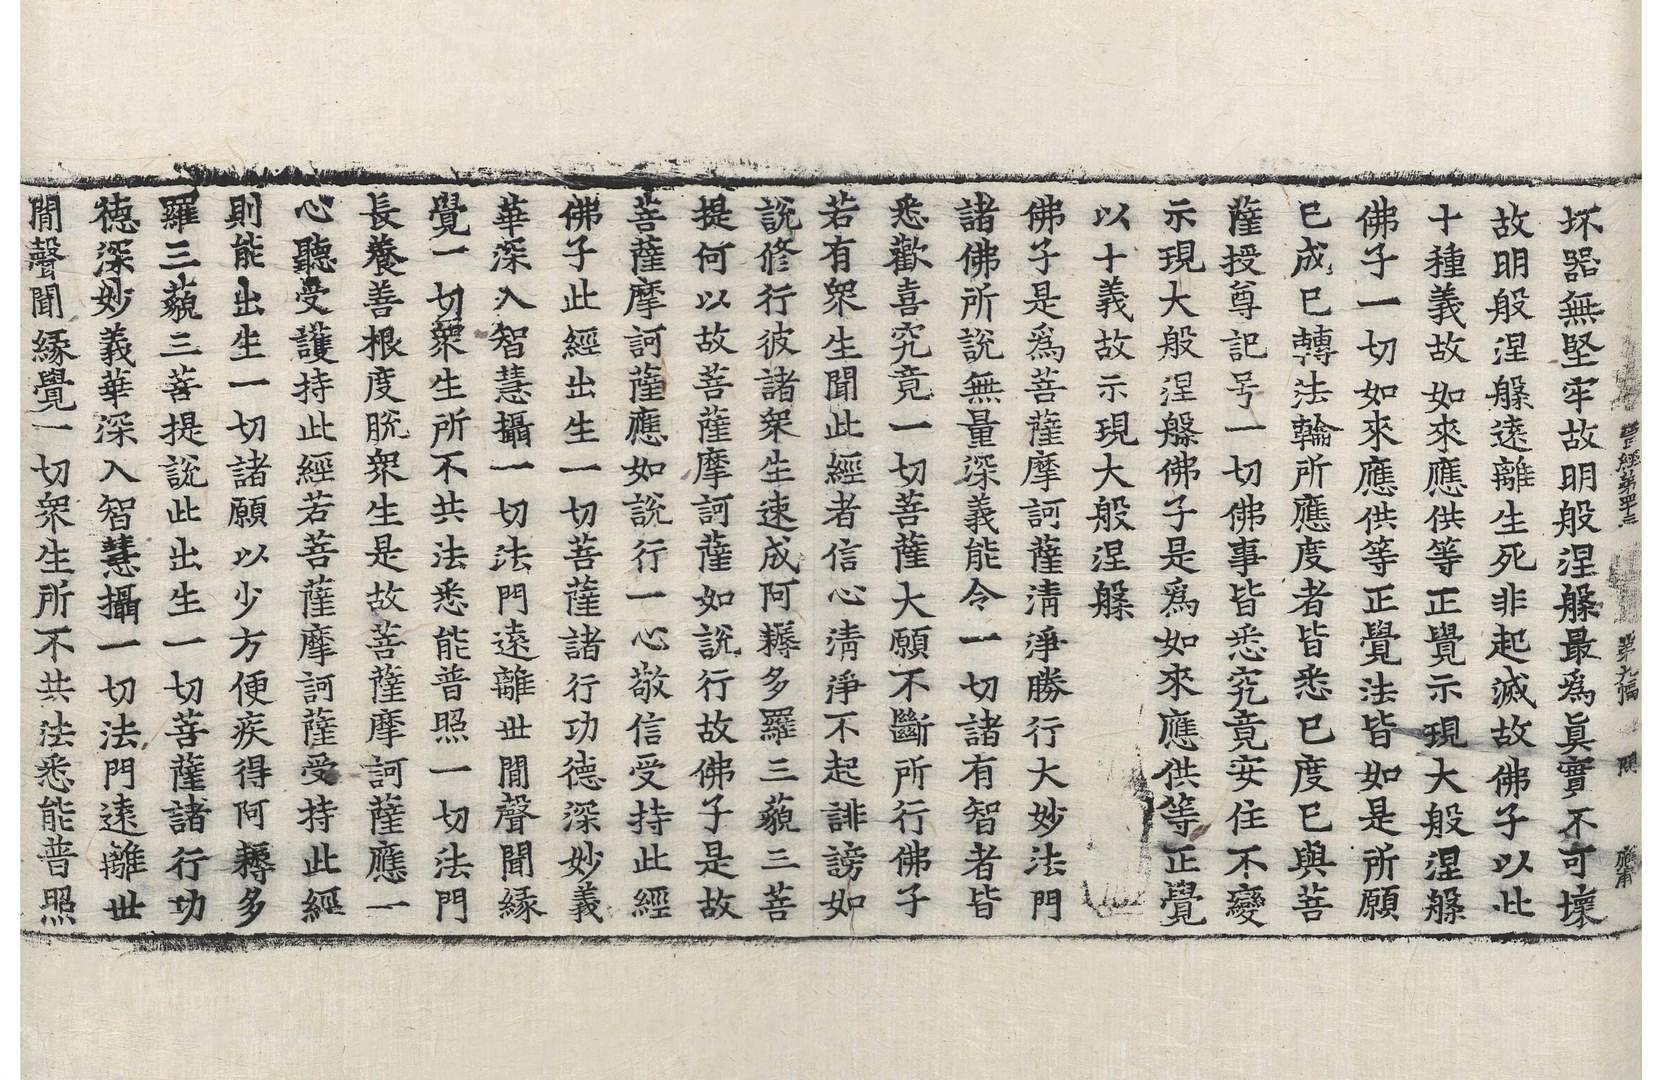 坏器無堅牢故明般涅槃最爲眞實不可壞
故明般涅槃遠離生死非起滅故佛子以此
十種義故如來應供等正覺示現大般涅槃
佛子一切如來應供等正覺法皆如是所願
已成已轉法輪所應度者皆悉已度已與菩
薩授尊記号一切佛事皆悉究竟安住不變
示現大般涅槃佛子是爲如來應供等正覺
以十義故示現大般涅槃
佛子是爲菩薩摩訶薩淸淨勝行大妙法門
諸佛所說無量深義能令一切諸有智者皆
悉歡喜究竟一切菩薩大願不斷所行佛子
若有衆生聞此經者信心淸淨不起誹謗如
說修行彼諸衆生速成阿耨多羅三藐三菩
提何以故菩薩摩訶薩如說行故佛子是故
菩薩摩訶薩應如說行一心敬信受持此經
佛子此經出生一切菩薩諸行功德深妙義
華深入智慧攝一切法門遠離世間聲聞緣
覺一切衆生所不共法悉能普照一切法門
長養善根度脫衆生是故菩薩摩訶薩應一
心聽受護持此經若菩薩摩訶薩受持此經
則能出生一切諸願以少方便疾得阿耨多
羅三藐三菩提說此出生一切菩薩諸行功
德深妙義華深入智慧攝一切法門遠離世
間聲聞緣覺一切衆生所不共法悉能普照